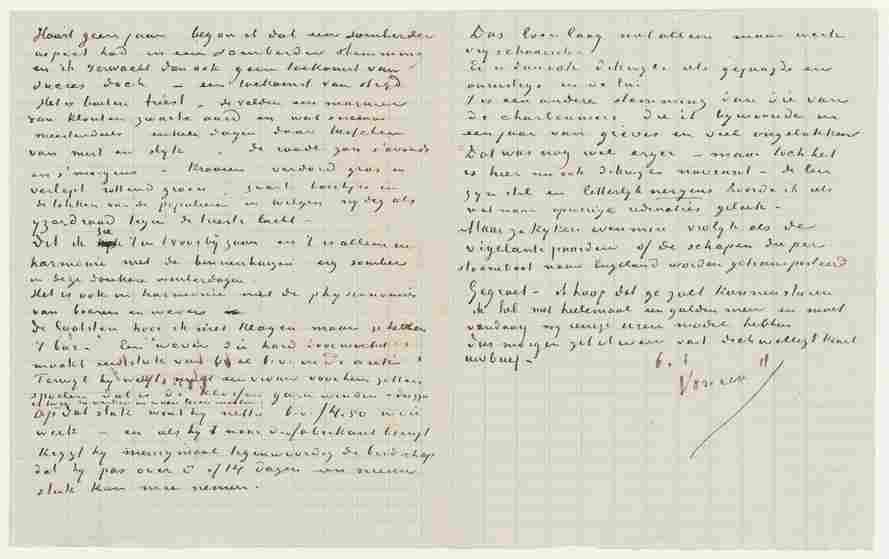 Haast geen jaar begon ik dat een somberder
aspect had in een somberder stemming
en ik verwacht dan ook geen toekomst van
succes doch – een toekomst van strijd
Het is buiten triest – de velden een marmer
van kluiten zwarte aard en wat sneeuw
meestendeels enkele dagen daar tusschen
van mist en slyk – de roode zon s'avonds
en s'morgens – kraaien verdord gras en
verlept rottend groen, zwart boschjes en
de takken van de populieren en wilgen nydig als
yzerdraad tegen de trieste lucht –
Dit ik zie 't in
harmonie met de binnenhuizen erg somber
in deze donkere winterdagen
Het is ook in harmonie met de physionomies
van boeren en wevers
De laatsten hoor ik niet klagen maar ze hebben
't Een wever die hard doorwerkt
maakt een stuk van b.v. el
Terwyl hy weeft, moet een vrouw voor hem
spoelen dat is de klosjes garen winden – dus zyn
Op dat stuk wint hy netto b.v. f4.50 in die
week – en als hy 't naar den fabrikant brengt
krygt hy menigmaal tegenwoordig de boodschap
dat hy pas over 8 of 14 dagen een nieuw
stuk kan mee nemen.
Dus loon laag niet alleen maar werk
vry schaarsch.
Er is dan ook dikwyls iets gejaagds en
onrustigs in de lui
't is een andere stemming dan die van
de charbonniers die ik bywoonde in
een jaar van grèves en veel ongelukken
Dat was nog wel erger – maar toch het
is hier nu ook dikwyls navrant – de lui
zyn stil en letterlyk nergens hoorde ik iets
wat naar oproerige redenaties geleek –
Maar ze kyken even min vrolyk als de
vigelante paarden of de schapen die per
stoomboot naar Engeland worden getransporteerd
Gegroet – ik hoop dat ge zult kunnen sturen
ik heb niet heelemaal een gulden meer en moet
vandaag nog eenige uren model hebben
b. t. t.
Vincent